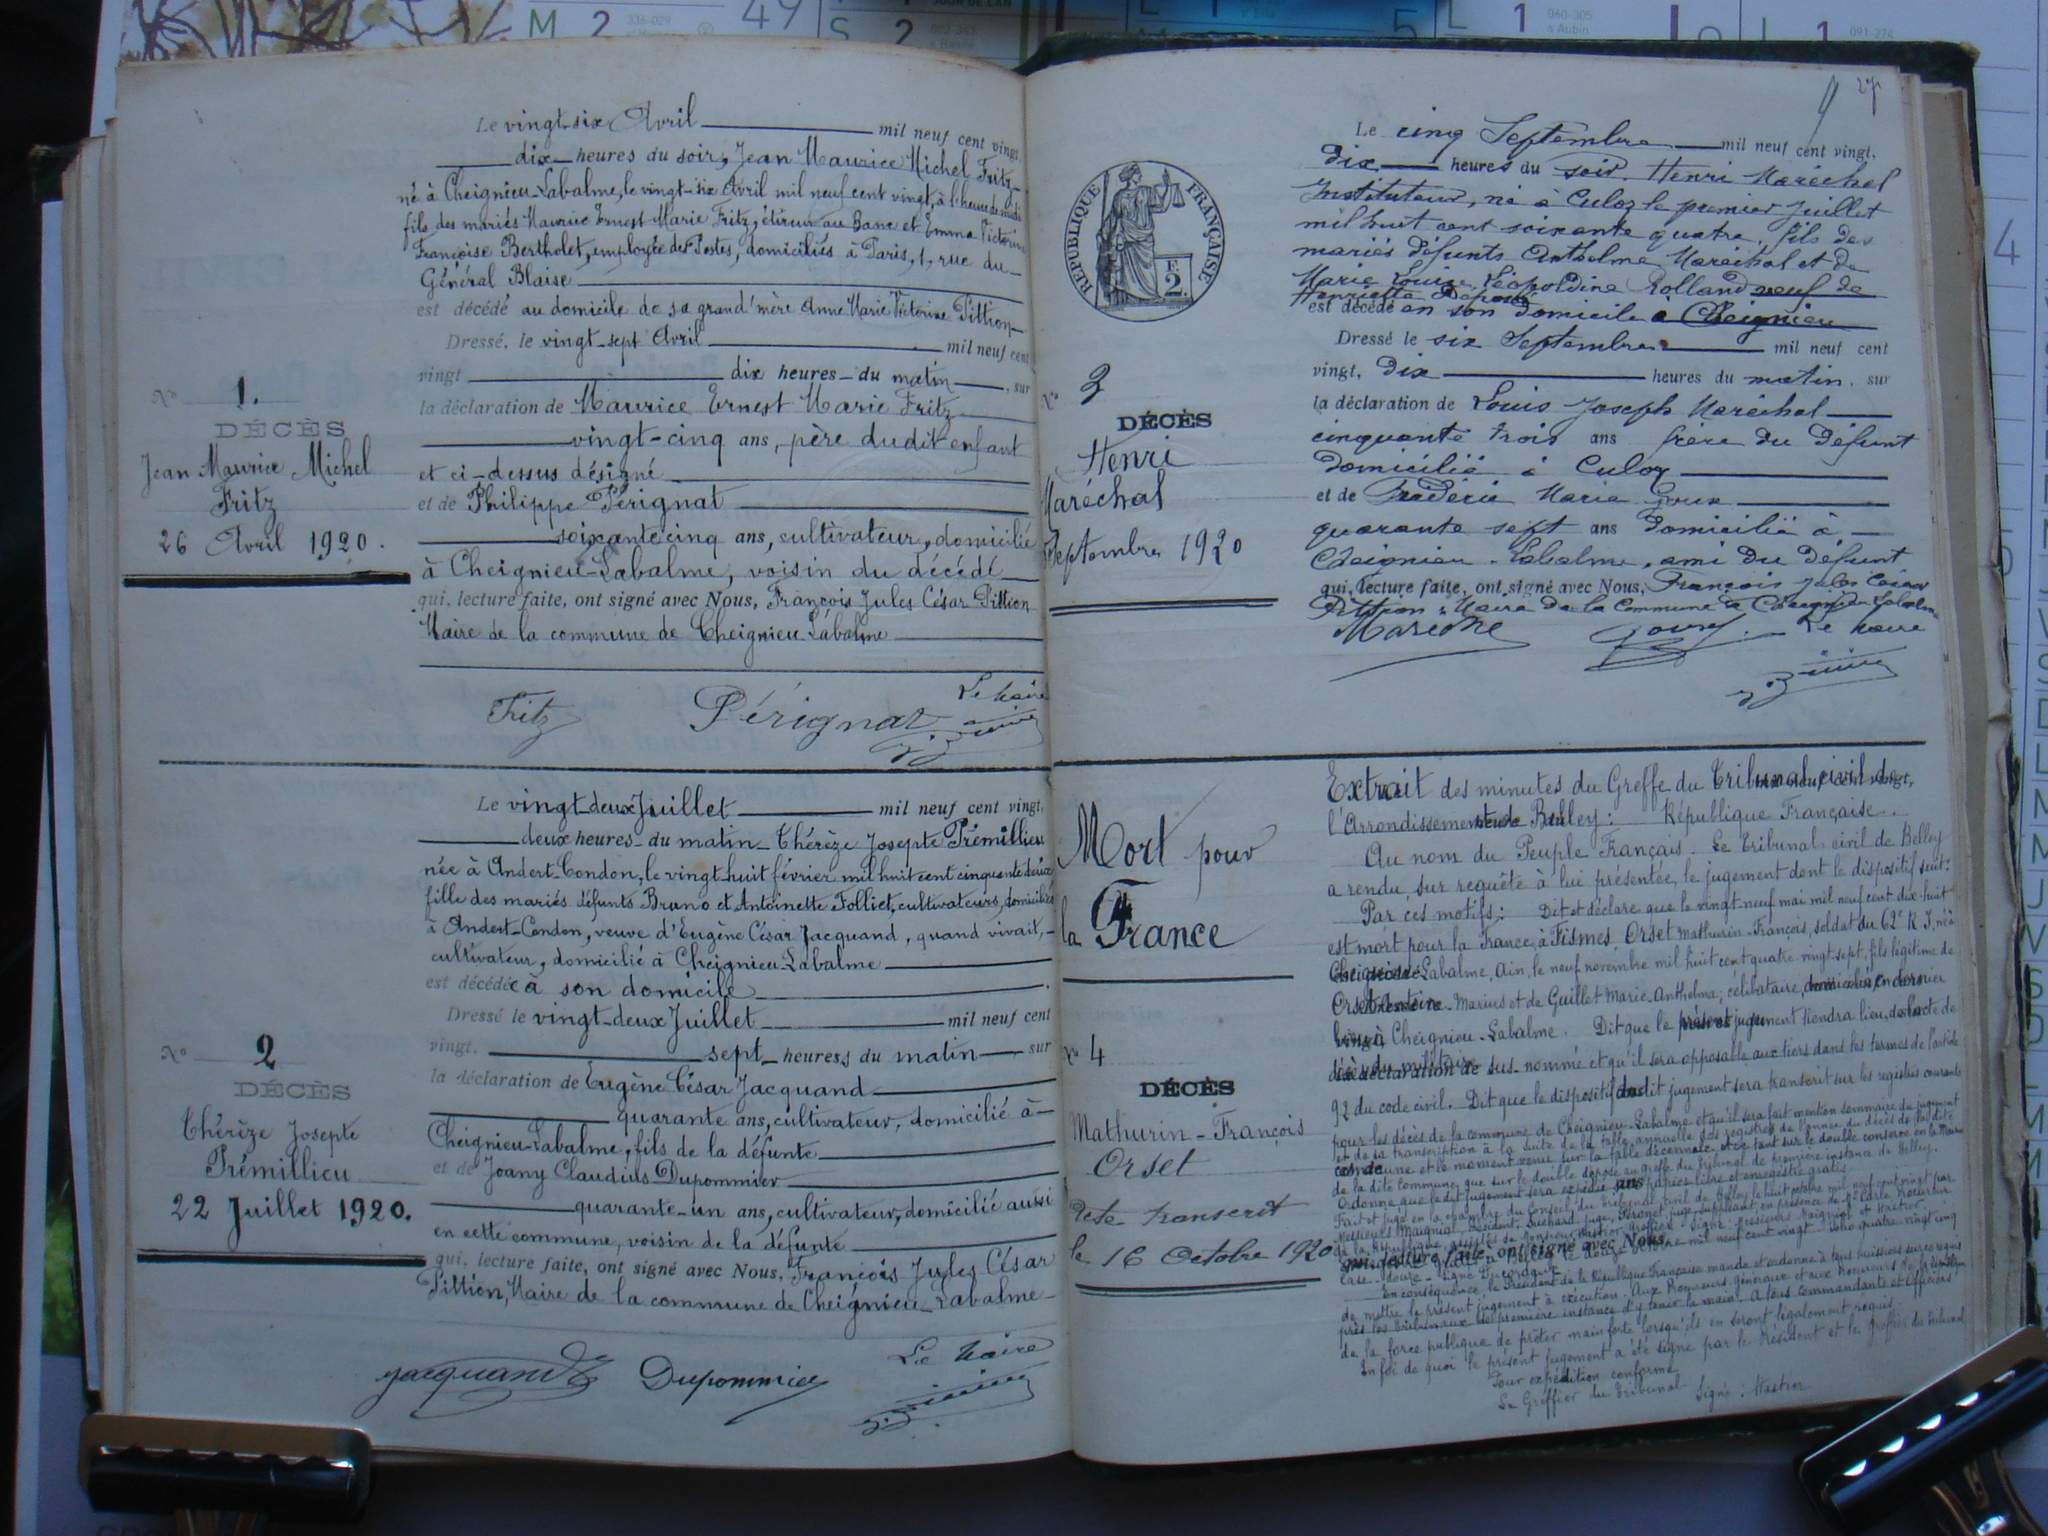 Le vingt-six Avril mil neuf cent vingt,
dix heures du soir, Jean Maurice Michel Fritz
né à Cheignieu-Labalme, le vingt-six Avril mil neuf cent vingt, à l'heure de midi
fils des mariés Maurice Ernest Marie Fritz, étireur au Banc et Emma Victorine
Françoise Bertholet, employée des Postes, domiciliés à Paris, 1, rue du
Général Blaise
est décédé au domicile de sa grand'mère Anne Marie Victorine Pittion
Dressé, le vingt-sept Avril mil neuf cent
vingt dix heures du matin, sur
la déclaration de Maurice Ernest Marie Fritz
vingt-cinq ans, père dudit enfant
et ci-dessus désigné
et de Philippe Pérignat
soixante cinq ans, cultivateur, domicilié
à Cheignieu-Labalme, voisin du décédé
qui, lecture faite, ont signé avec Nous, François Jules César Pittion
Maire de la commune de Cheignieu Labalme
N° 1.
DÉCÈS
Jean Maurice Michel
Fritz
26 Avril 1920.
Fritz Pérignat Le Maire
Le vingt-deux Juillet mil neuf cent vingt,
deux heures du matin Thérèze Josepte Prémillieu
née à Andert-Condon, le vingt huit février mil huit cent cinquante deux
fille des mariés défunts Bruno et Antoinette Folliet, cultivateurs, domiciliés
à Andert-Condon, veuve d'Eugène César Jacquand, quand vivait,
cultivateur, domicilié à Cheignieu Labalme
est décédée à son domicile
Dressé le vingt-deux Juillet mil neuf cent
vingt, sept heures du matin sur
la déclaration de Eugène César Jacquand
quarante ans, cultivateur, domicilié à
Cheignieu-Labalme, fils de la défunte
et de Joany Claudius Dupommier
quarante-un ans, cultivateur, domicilié aussi
en cette commune, voisin de la défunte
qui, lecture faite, ont signé avec Nous, François Jules César
Pittion, Maire de la commune de Cheignieu-Labalme
N° 2
DÉCÈS
Thérèze Josepte
Prémillieu
22 Juillet 1920.
Jacquand Dupommier Le Maire
27
Le cinq Septembre mil neuf cent vingt,
dix heures du soir. Henri Maréchal
Instituteur, né à Culoz le premier Juillet
mil huit cent soixante quatre, fils des
mariés défunts Anthelme Maréchal et de
Marie Louise Léopoldine Rolland veuf de
est décédé en son domicile à Cheignieu
Dressé le six Septembre mil neuf cent
vingt, dix heures du matin, sur
la déclaration de Louis Joseph Maréchal
cinquante trois ans frère du défunt
domicilié à Culoz
et de Frédéric Marie
quarante sept ans domicilié à
Cheignieu-Labalme, ami du défunt
qui, lecture faite, ont signé avec Nous, François Jules César
Pittion, Maire de la Commune de Cheignieu Labalme
Le Maire
RÉPUBLIQUE FRANÇAISE
2
N° 3
DÉCÈS
Henri
Maréchal
Septembre 1920
Mort pour
la France
N° 4
DÉCÈS
Mathurin-François
Orset
Acte transcrit
le 16 Octobre 1920
Extrait des minutes du Greffe du Tribunal civil de
l'Arrondissement de Belley: République Française.
Au nom du Peuple Français. Le Tribunal civil de Belley
a rendu sur requête à lui présentée, le jugement dont le dispositif suit:
Par ces motifs: Dit et déclare que le vingt-neuf mai mil neuf cent dix-huit
est mort pour la France, à Fismes, Orset Mathurin-François, soldat du 62e R I, né à
Cheignieu-Labalme, Ain, le neuf novembre mil huit cent quatre vingt-sept, fils légitime de
Orset Antoine-Marius et de Guillet Marie-Anthelma, célibataire, domicilié en dernier
lieu à Cheignieu-Labalme. Dit que le présent jugement tiendra lieu, de l'acte de
décès du militaire sus-nommé et qu'il sera opposable aux tiers dans les termes de l'article
92 du code civil. Dit que le dispositif dudit jugement sera transcrit sur les registres courants
pour les décès de la commune de Cheignieu-Labalme et qu'il sera fait mention sommaire du jugement
et de sa transcription à la suite de la table annuelle des registres de l'année du décès de la dite
commune et le moment venu sur la table décennale, et ce tant sur le double conservé en la Mairie
de la dite commune que sur le double déposé au greffe du tribunal de première instance de Belley.
Ordonne que le dit jugement sera expédié sur papier libre et enregistré gratis
Fait et jugé en la chambre du Conseil du Tribunal civil de Belley le huit octobre mil neuf cent vingt par
En conséquence, le Président de la République Française mande et ordonne à tous huissiers sur ce requis
de mettre le présent jugement à exécution. Aux Procureurs généraux et aux Procureurs de la République
près les tribunaux de première instance d'y tenir la main. A tous Commandants et officiers
de la force publique de prêter main forte lorsqu'ils en seront légalement requis.
En foi de quoi le présent jugement a été signé par le Président et le greffier du tribunal
Pour expédition conforme
Le Greffier du Tribunal Signé: